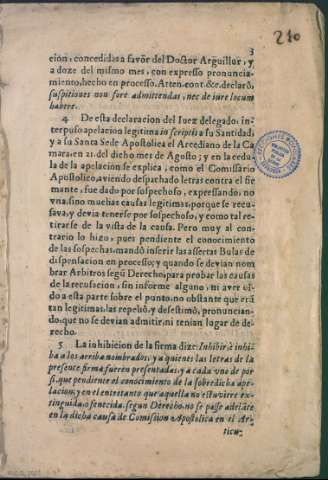 3
210
cion, concedidas a favor del Doctor Arguillur, y
a doze del mismo mes, con expresso pronuncia-
miento, hecho en processo, Atten. cont. &c. declarò,
suspitiones non fore admittendas, nec de iure locum
habere.
4 De esta declaracion del Iuez delegado, in-
terpuso apelacion legitima in scriptis a su Santidad,
y a su Santa Sede Apostolica el Arcediano de la Ca
mara, en 21. del dicho mes de Agosto; y en la cedu
la de la apelacion se explica, como el Comissario
Apostolico, aviendo despachado letras contra el fir
mante, fue dado por sospechoso, expressando, no
vna, sino muchas causas legitimas, porque se recu-
sava, y devia tenerse por sospechoso, y como tal re-
tirarse de la vista de la causa. Pero muy al con-
trario lo hizo, pues pendiente el conocimiento
de las sospechas, mandò inserir las assertas Bulas de
dispensacion en processo; y quando se devian nom
brar Arbitros segũ Derecho, para probar las causas
de la recusacion, sin informe alguno, ni aver oi-
do a esta parte sobre el punto, no obstante que erã
tan legitimas, las repeliò, y desestimò, pronuncian-
do, que no se devian admitir, ni tenian lugar de de-
recho.
5 La inhibicion de la firma dize: Inhibir, è inhi-
ba a los arriba nombrados, y a quienes las letras de la
presente firma fueren presentadas, y a cada vno de por
si, que pendiente el conocimiento de la sobredicha ape-
lacion, y en el entretanto que aquella no estuviere ex-
tinguida, ò fenecida, segun Derecho, no se passe adelãte
en la dicha causa de Comission Apostolica en el Ar-
ticu-